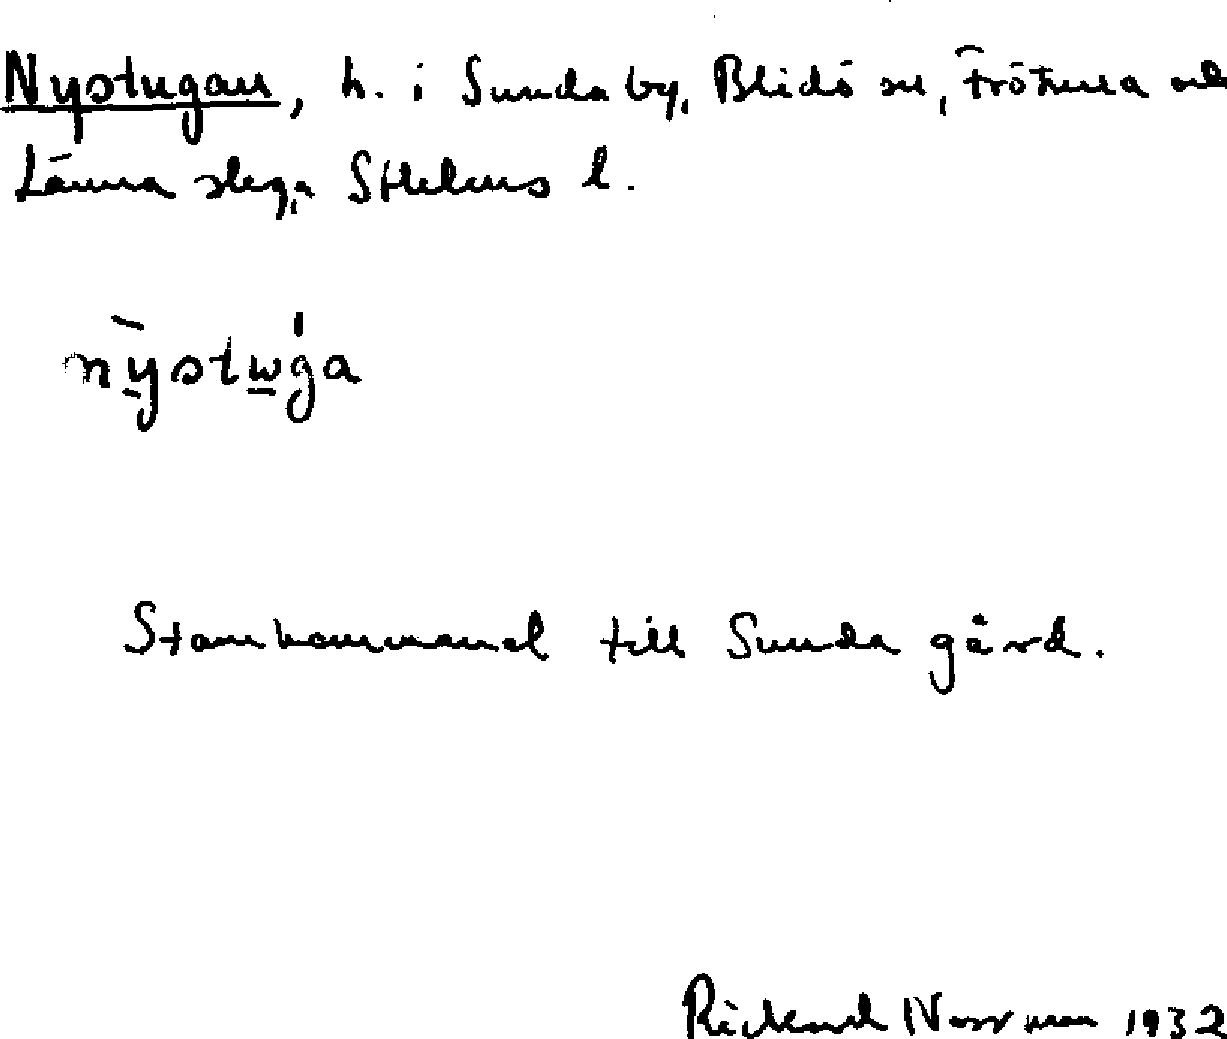 Nystugan, h. i Sunda by, Blidö sn, Frötuna och
Länna slg, Sthlms l.
nystuga
Stamhemman till Sunda gård.
Rickard Norrman 1932